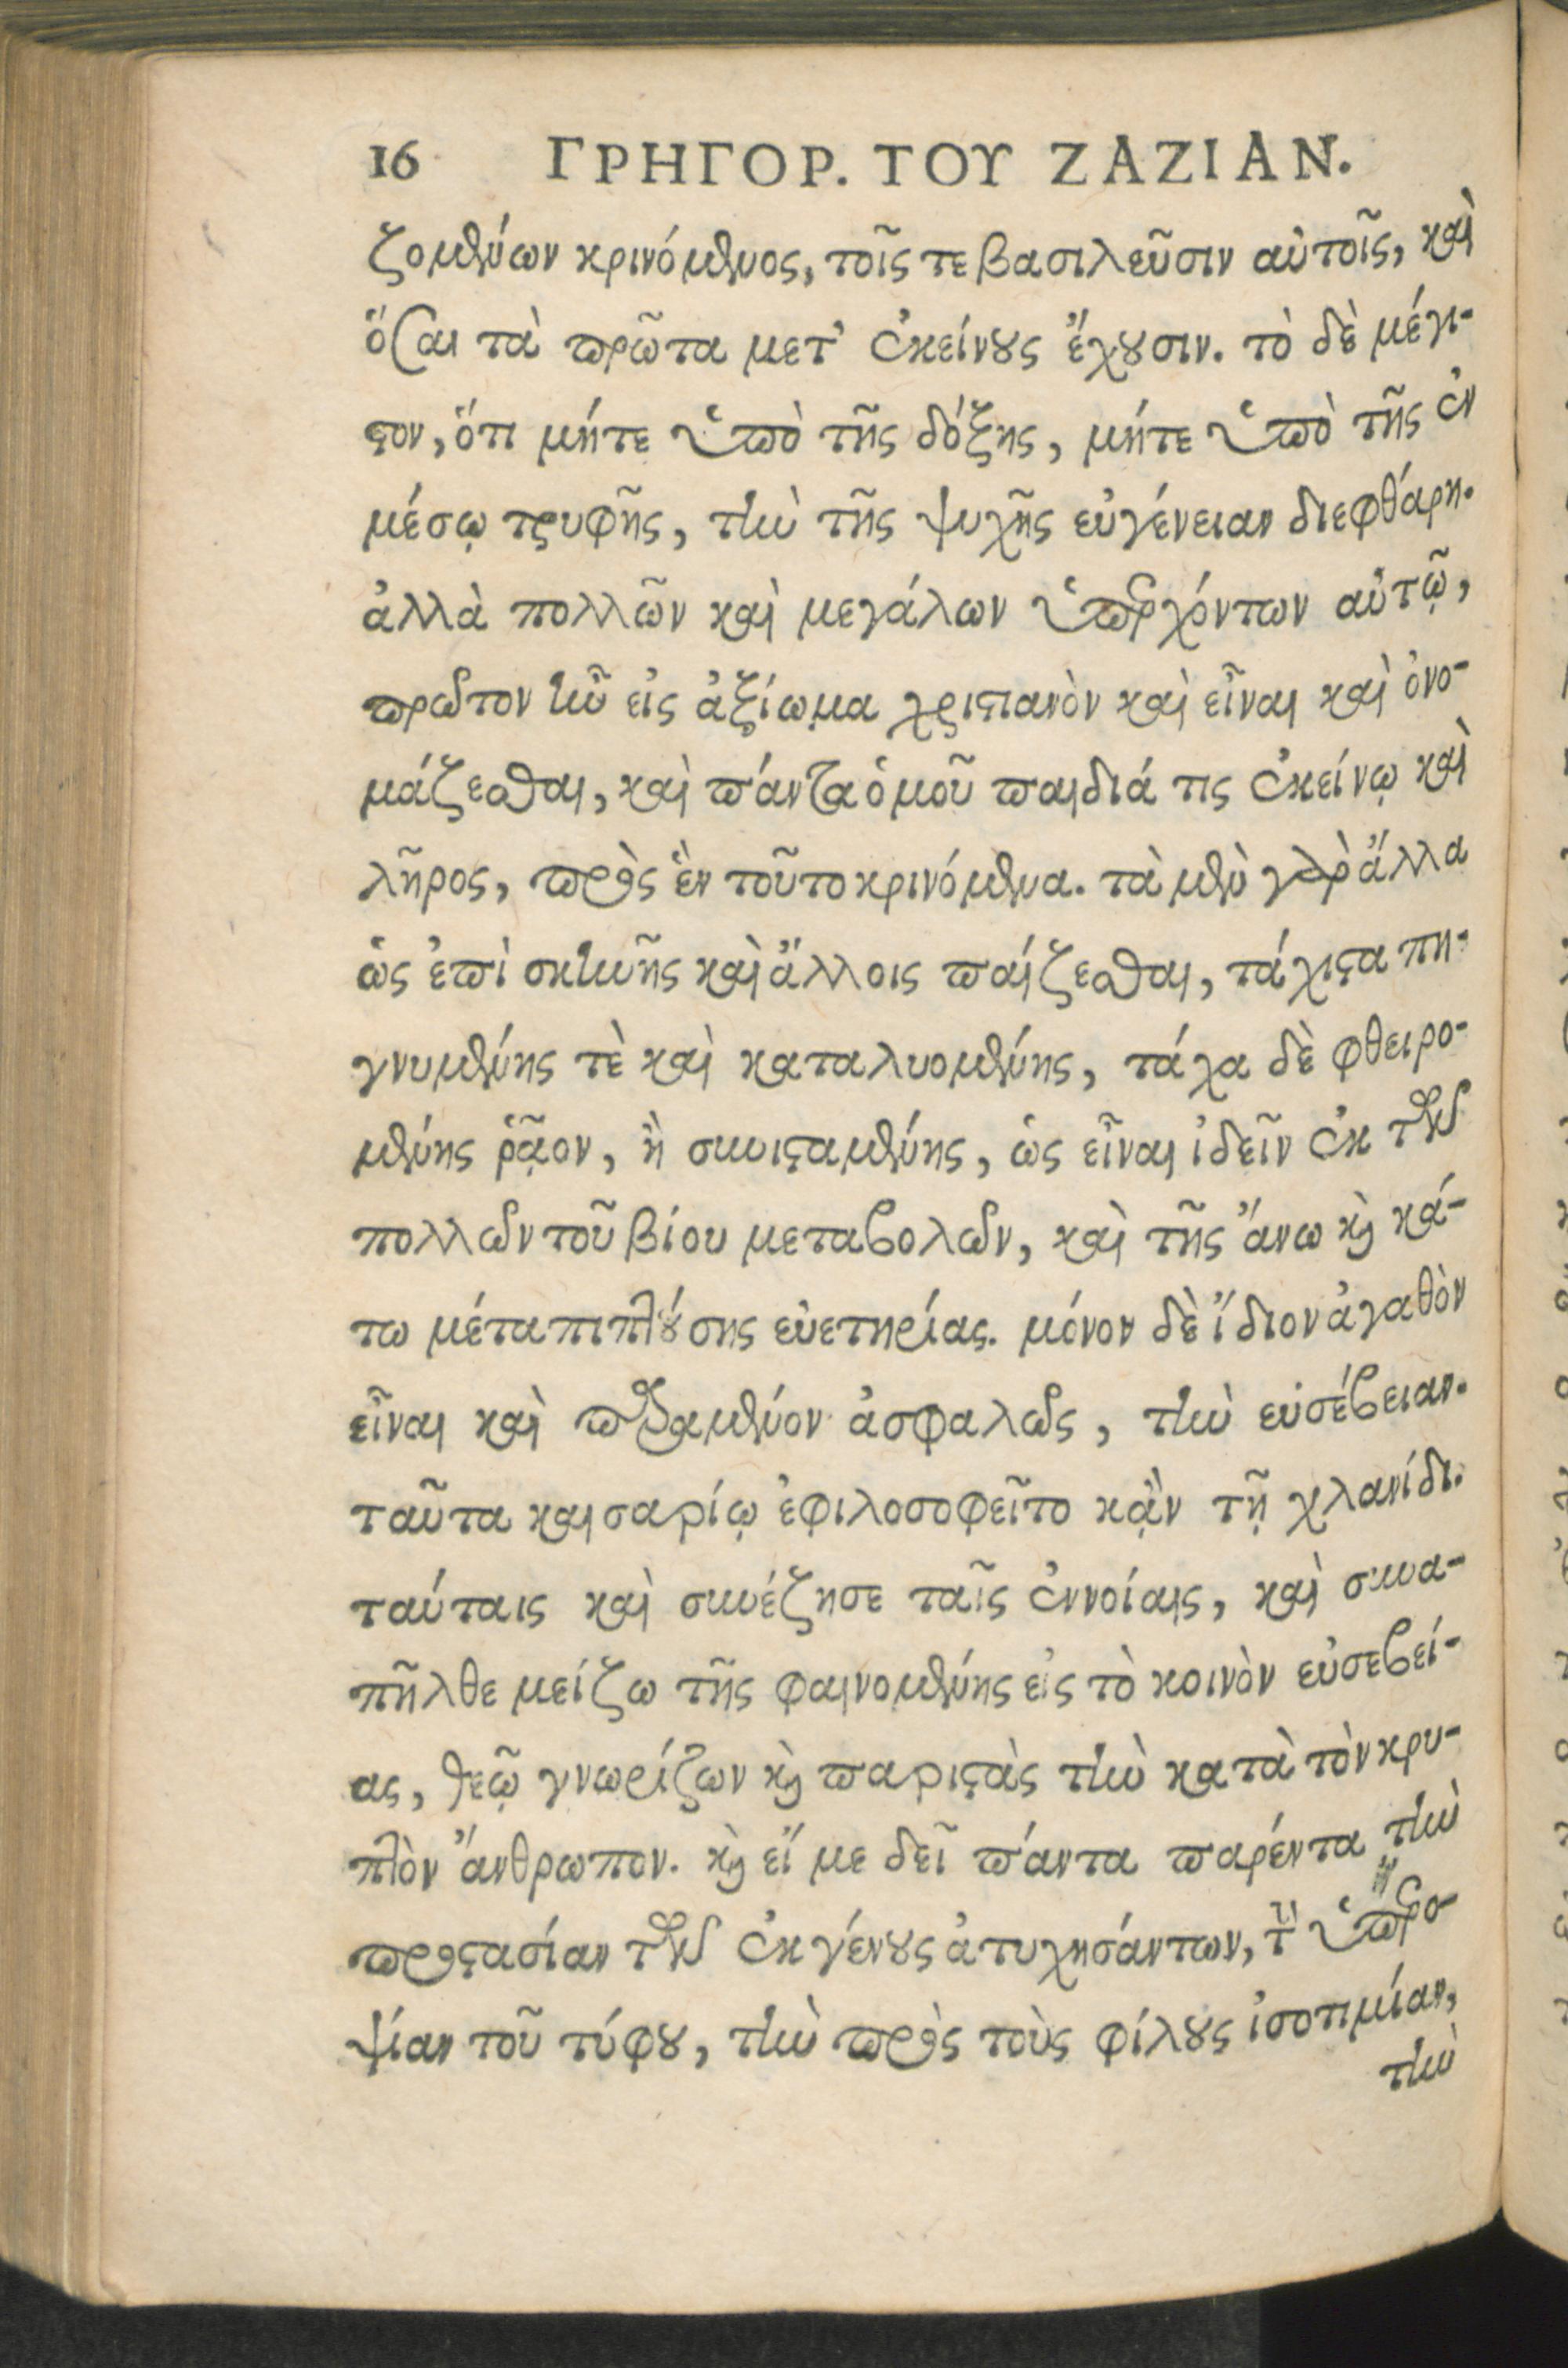 16 ΓΡΗΓΟΡ. ΤΟΥ ΖΑΖΙΑΝ.
ζομένων κρινόμενος, τοῖς τε βασιλεῦσιν αὐτοῖς, καὶ
ὅσαι τὰ πρῶτα μετ' ἐκείνους ἔχουσιν. τὸ δὲ μέγι-
στον, ὅτι μήτε ὑπὸ τῆς δόξης, μήτε ὑπὸ τῆς ἐν
μέσῳ τρυφῆς, τὴν τῆς ψυχῆς εὐγένειαν διεφθάρη.
ἀλλὰ πολλῶν καὶ μεγάλων ὑπαρχόντων αὐτῷ,
πρῶτον ἦν εἰς ἀξίωμα χριστιανὸν καὶ εἶναι καὶ ὀνο-
μάζεσθαι, καὶ πάντα ὁμοῦ παιδιά τις ἐκείνῳ καὶ
λῆρος, πρὸς ἓν τοῦτο κρινόμενα. τὰ μὲν γὰρ ἄλλα
ὡς ἐπὶ σκηνῆς καὶ ἄλλοις παίζεσθαι, τάχιστα πη-
γνυμένης τὲ καὶ καταλυομένης, τάχα δὲ φθειρο-
μένης ῥᾷον, ἢ συνισταμένης, ὡς εἶναι ἰδεῖν ἐκ τῶν
πολλῶν τοῦ βίου μεταβολῶν, καὶ τῆς ἄνω καὶ κά-
τω μέταπιπτούσης εὐετηρίας. μόνον δὲ ἴδιον ἀγαθὸν
εἶναι καὶ παραμένον ἀσφαλῶς, τὴν εὐσέβειαν.
ταῦτα καισαρίῳ ἐφιλοσοφεῖτο κᾂν τῇ χλανίδι.
ταύταις καὶ συνέζησε ταῖς ἐννοίαις, καὶ συνα-
πῆλθε μείζω τῆς φαινομένης εἰς τὸ κοινὸν εὐσεβεί-
ας, θεῷ γνωρίζων καὶ παριστὰς τὴν κατὰ τὸν κρυ-
πτὸν ἄνθρωπον. καὶ εἴ με δεῖ πάντα παρέντα τὴν
προστασίαν τῶν ἐκ γένους ἀτυχησάντων, τὴν ὑπερο-
ψίαν τοῦ τύφου, τὴν πρὸς τοὺς φίλους ἰσοτιμίαν,
τὴν